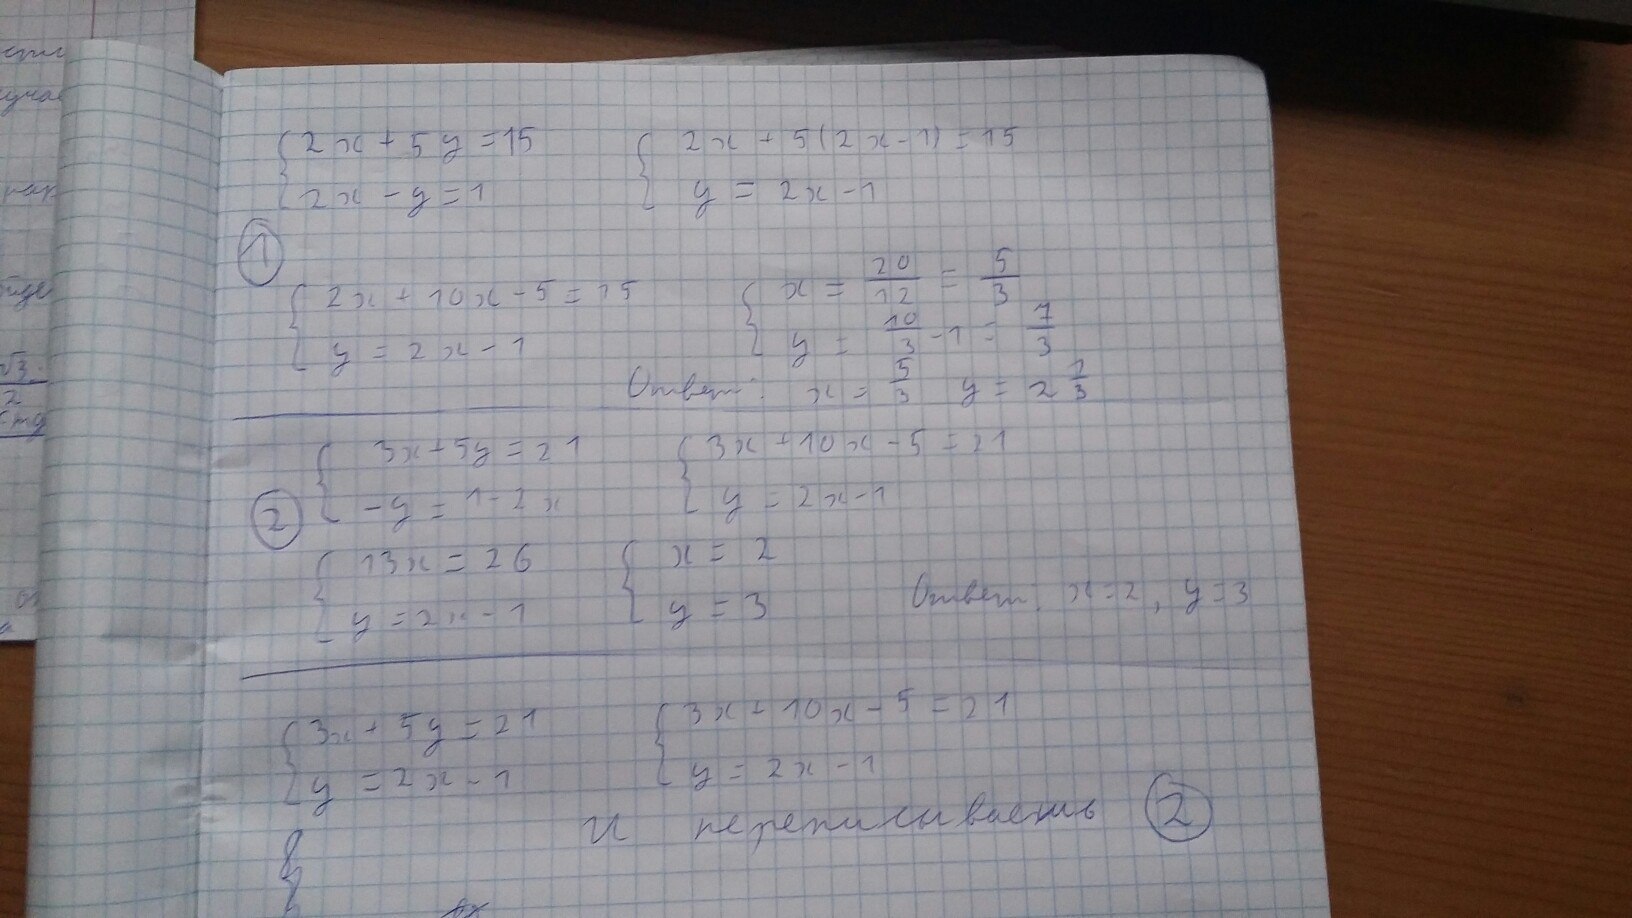 2x + 5y = 15
2x - y = 1
2x + 5(2x-1) = 15
y = 2x-1
1
2x + 10x - 5 = 15
y = 2x - 1
x = 20/12 = 5/3
y = 10/3 - 1 = 7/3
Ответ: x = 5/3 y = 2 1/3
2
3x + 5y = 21
-y = 1-2x
3x + 10x - 5 = 21
y = 2x-1
13x = 26
y = 2x - 1
x = 2
y = 3
Ответ: x=2, y=3
3x + 5y = 21
y = 2x - 1
3x + 10x - 5 = 21
y = 2x - 1
и переписываешь 2